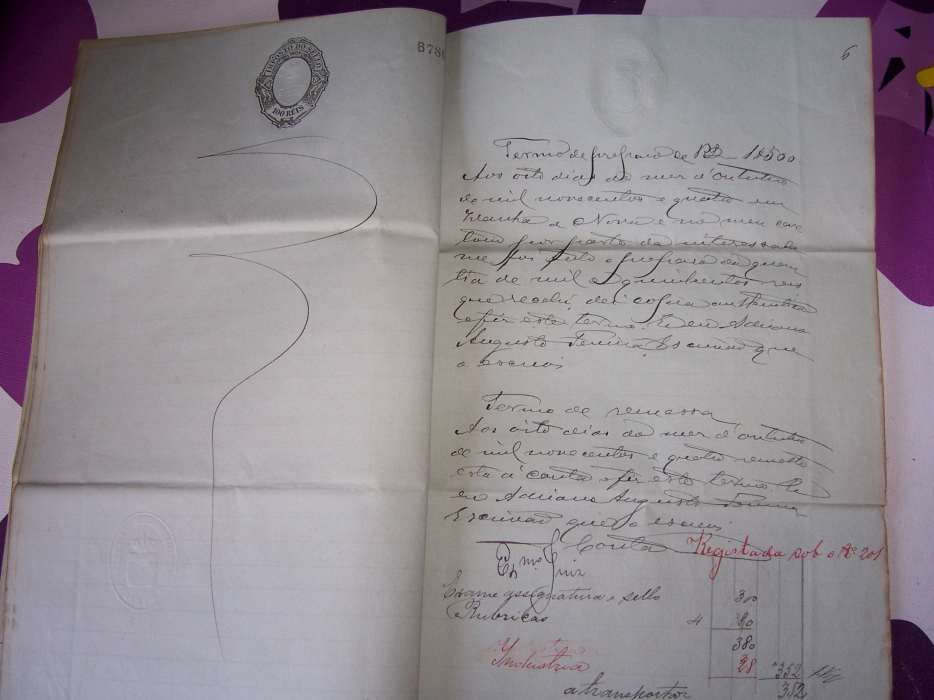 IMPOSTO DO SELLO
100 RÉIS
878
6
Termo de preparo de RS – 1$500
Aos oito dias do mez d'outubro
de mil novecentos e quatro em
e no meu car
torio por parte da interessada
me foi feito o preparo da quan
tia de mil e quinhentos reis
que recebi, dei
e fiz este termo. E eu Adriano
Augusto Escrivão que
o escrevi.
Termo de remessa
Aos oito dias do mez d'outubro
de mil novecentos e quatro remetto
esta á conta e fiz este termo. E
eu Adriano Augusto
Escrivão que o escrevi.
Conta Registada sob o Nº 201
Juiz
Exame assignatura e sello 300
Rubricas 4 80
380
Industria 28 352
a transportar 352